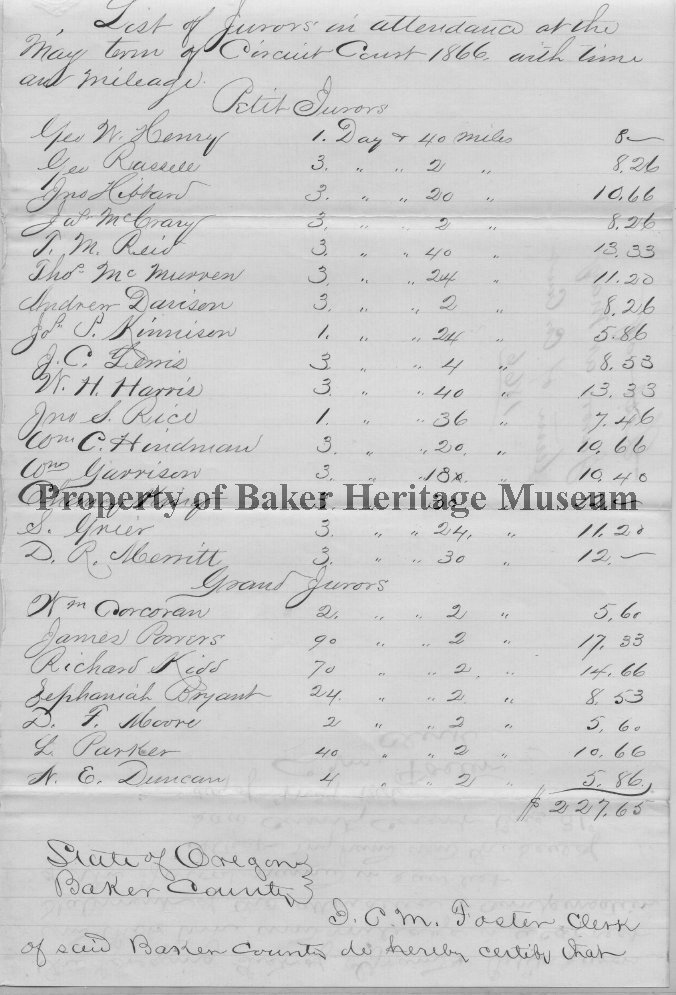 List of Jurors in attendance at the
May term of Circuit Court 1866 with time
and Mileage.
Petit Jurors
Geo W. Henry 1. Day & 40 miles 8—
Geo Russell 3. " " 2 " 8.26
Jno Hibbard 3. " " 20 " 10.66
Jas McCrary 3. " " 2 " 8.26
T. M. Reid 3. " " 40 " 13.33
Thos. McMurren 3. " " 24 " 11.20
Andrew Davison 3. " " 2 " 8.26
Jos. P. Kinnison 1. " " 24 " 5.86
J. C. Lewis 3. " " 4 " 8.53
W. H. Harris 3. " " 40 " 13.33
Jno S. Rice 1. " " 36 " 7.46
Wm C. Hindman 3. " " 20. " 10.66
Wm Garrison 3. " " 18 " 10.40
Property of Baker Heritage Museum
S. Grier 3. " " 24. " 11.20
D. R. Merritt 3. " " 30 " 12.—
Grand Jurors
Wm Corcoran 2. " " 2 " 5.60
James Powers 90 " " 2 " 17.33
Richard Kidd 70 " " 2. " 14.66
Zephaniah Bryant 24. " " 2 " 8.53
D. F. Moore 2 " " 2 " 5.60
L. Parker 40 " " 2 " 10.66
N. E. Duncan 4 " " 2 " 5.86
$227.65
State of Oregon
Baker County
I. C. M. Foster Clerk
of said Baker County do hereby certify that